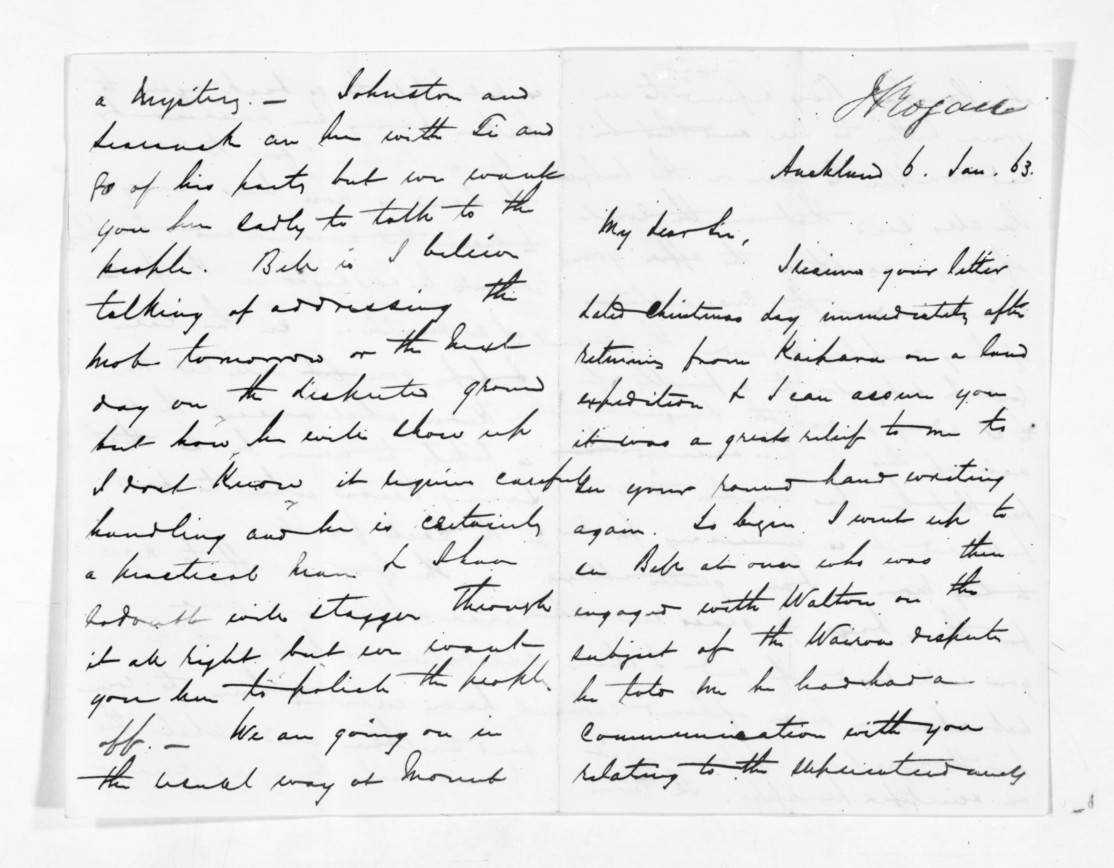 a mystery. — Johnston and
are here with Te and
80 of his party but we want
you here sadly to talk to the
people. Bell is I believe
talking of addressing the
mob tomorrow or the next
day on the disputed ground
but how he will show up
I dont know it requires careful
handling and he is certainly
a practical man & I have
no doubt will stagger through
it all right but we want
you here to polish the people
off. — We are going on in
the usual way at
J Rogan
Auckland 6. Jan. 63.
My dear Sir,
I received your letter
dated Christmas day immediately after
returning from Kaipara on a land
expedition & I can assure you
it was a great relief to me to
see your round hand writing
again. To begin I went up to
see Bell at once who was then
engaged with Walton on the
subject of the Wairoa dispute
he told me he had had a
communication with you
relating to the